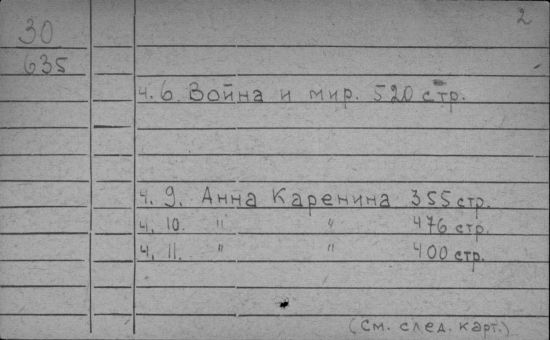 2
30
635
ч. 6. Война и мир. 520 стр.
ч. 9. Анна Каренина 355 стр.
ч. 10. " " 476 стр.
ч. 11. " " 400 стр.
(см. след. карт.)